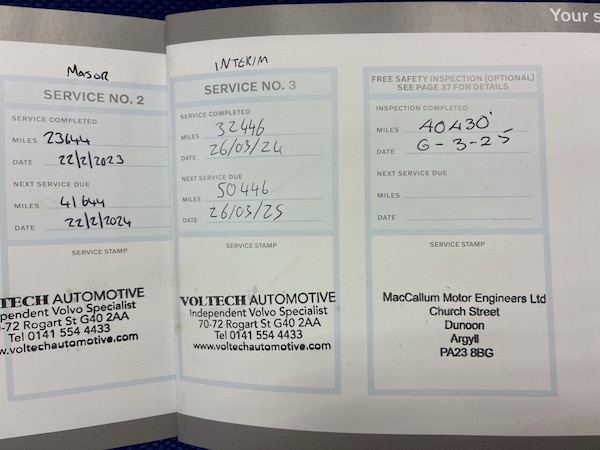 Your s
Major
SERVICE NO. 2
SERVICE COMPLETED
MILES 23644
DATE 22/2/2023
NEXT SERVICE DUE
MILES 41644
DATE 22/2/2024
SERVICE STAMP
TECH AUTOMOTIVE
pendent Volvo Specialist
-72 Rogart St G40 2AA
Tel 0141 554 4433
w.voltechautomotive.com
INTERIM
SERVICE NO. 3
SERVICE COMPLETED
MILES 32446
DATE 26/03/24
NEXT SERVICE DUE
MILES 50446
DATE 26/03/25
SERVICE STAMP
VOLTECH AUTOMOTIVE
Independent Volvo Specialist
70-72 Rogart St G40 2AA
Tel 0141 554 4433
www.voltechautomotive.com
FREE SAFETY INSPECTION (OPTIONAL)
SEE PAGE 37 FOR DETAILS
INSPECTION COMPLETED
MILES 40430
DATE 6-3-25
NEXT SERVICE DUE
MILES
DATE
SERVICE STAMP
MacCallum Motor Engineers Ltd
Church Street
Dunoon
Argyll
PA23 8BG